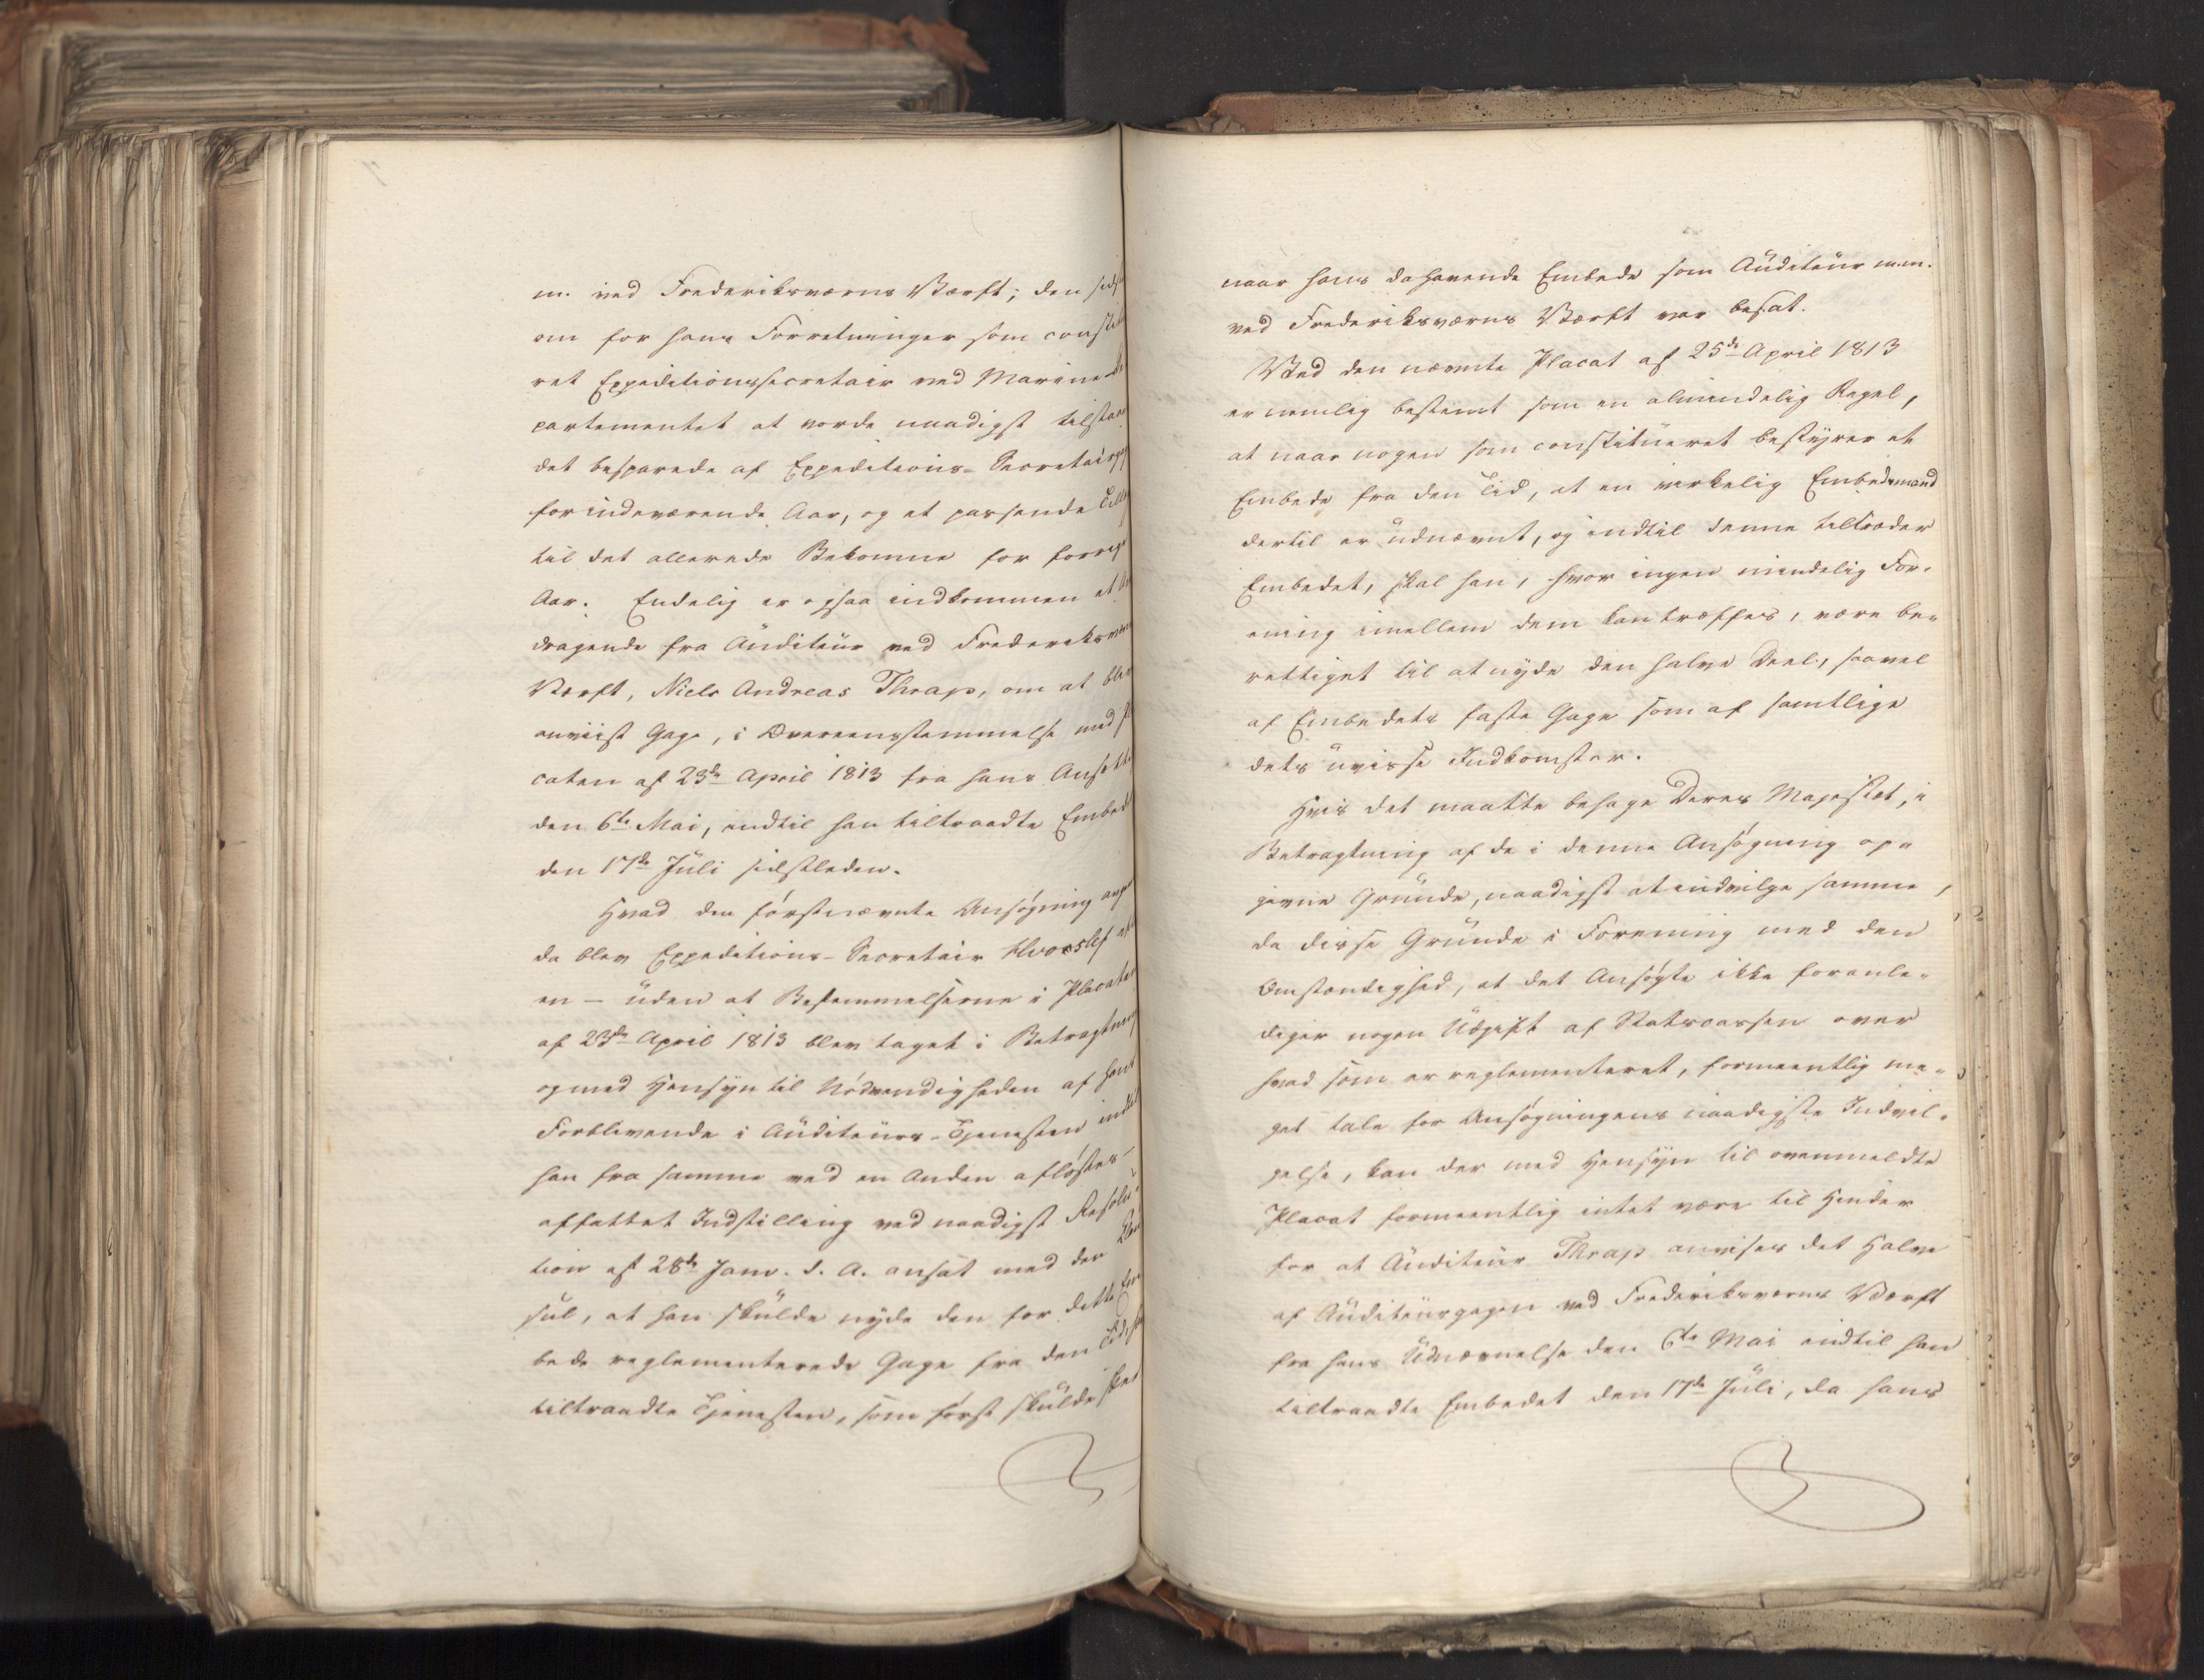 m. ved Frederiksværns Værft; den
om for hans Forretninger som
ret Expeditionssecretair ved Marine
partementet at vorde naadigst
det besparede af Expeditions-
for indeværende Aar, og et passende
til det allerede Bekomne for
Aar. Endelig er ogsaa indkommen et
dragende fra Auditeur ved
Værft, Niels Andreas Thrap, om at
anviist Gage, i Overeensstemmelse med
caten af 23de April 1813 fra hans
den 6te Mai, indtil han tiltraadte
den 17de Juli sidstleden.
Hvad den førstnævnte Ansøgning
da blev Expeditions-Secretair Hvoslef
en – uden at Bestemmelserne i
af 23de April 1813 blev taget i
og med Hensyn til Nødvendigheden af hans
Forblivende i Auditeurs-Tjenesten
han fra samme ved en Anden afløstes –
affattet Indstilling ved naadigst Resolu-
tion af 28de Janv. d. A. ansat med den
sul, at han skulde nyde den for dette
bede reglementerede Gage fra den
tiltraadte Tjenesten, som først skulde
naar hans dahavende Embede som Auditeur m.m.
ved Frederiksværns Værft var besat.
Ved den nævnte Placat af 25de April 1813
er nemlig bestemt som en almindelig Regel,
at naar nogen som constitueret bestyrer et
Embede fra den Tid, at en virkelig Embedsmand
dertil er udnævnt, og indtil denne tiltræder
Embedet, skal han, hvor ingen mindelig For-
ening imellem dem kan træffes, være be-
rettiget til at nyde den halve Deel, saavel
af Embedets faste Gage som af samtlige
dets uvisse Indkomster.
Hvis det maatte behage Deres Majestæt, i
Betragtning af de i denne Ansøgning op-
givne Grunde, naadigst at indvilge samme,
da disse Grunde i Forening med den
Omstændighed, at det Ansøgte ikke foranle-
diger nogen Udgift af Statscassen over
hvad som er reglementeret, formeentlig me-
get tale for Ansøgningens naadigste Indvil-
gelse, kan der med Hensyn til ovenmeldte
Placat formeentlig intet være til Hinder
for at Auditeur Thrap anvises det Halve
af Auditeurgagen ved Frederiksværns Værft
fra hans Udnævnelse den 6te Mai indtil han
tiltraadte Embedet den 17de Juli, da hans